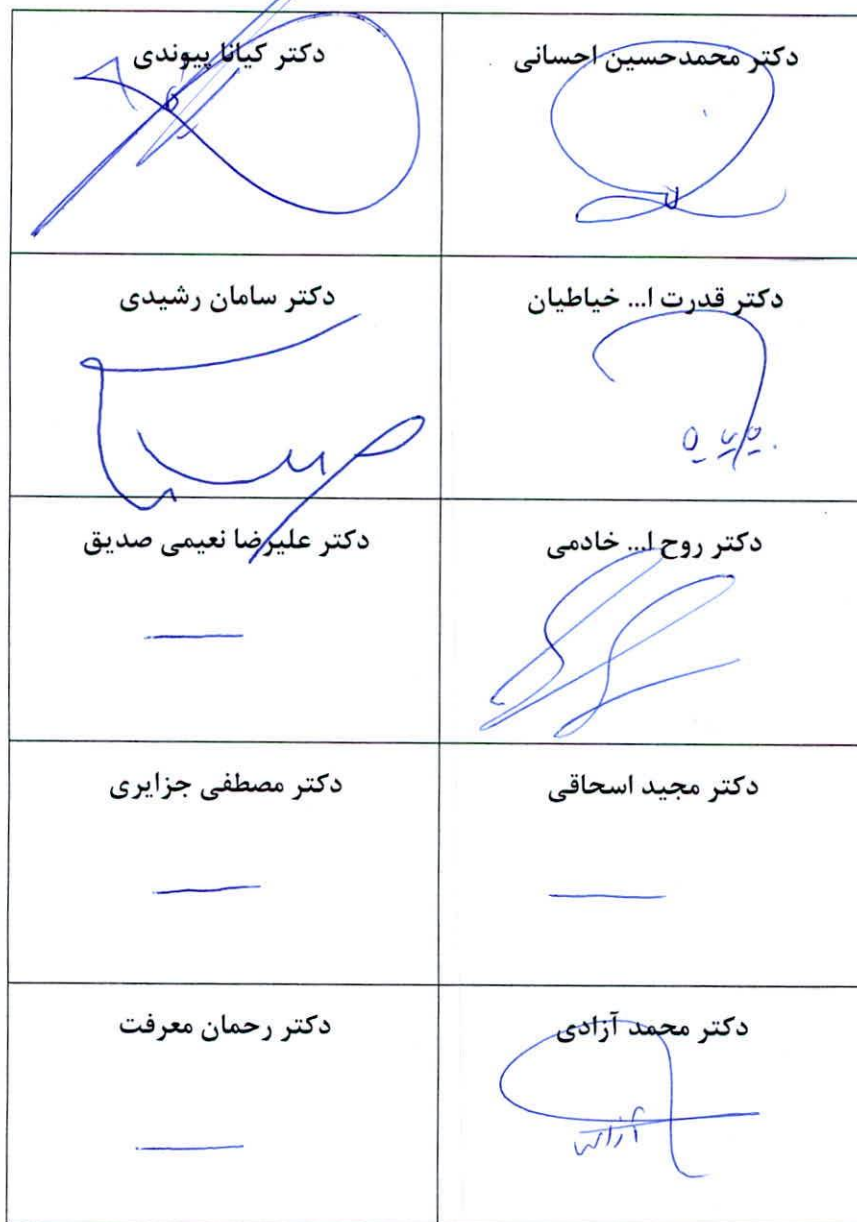 دکتر محمدحسین احسانی
دکتر کیانا پیوندی
دکتر قدرت ا... خیاطیان
دکتر سامان رشیدی
دکتر روح ا... خادمی
دکتر علیرضا نعیمی صدیق
دکتر مجید اسحاقی
دکتر مصطفی جزایری
دکتر محمد آزادی
دکتر رحمان معرفت